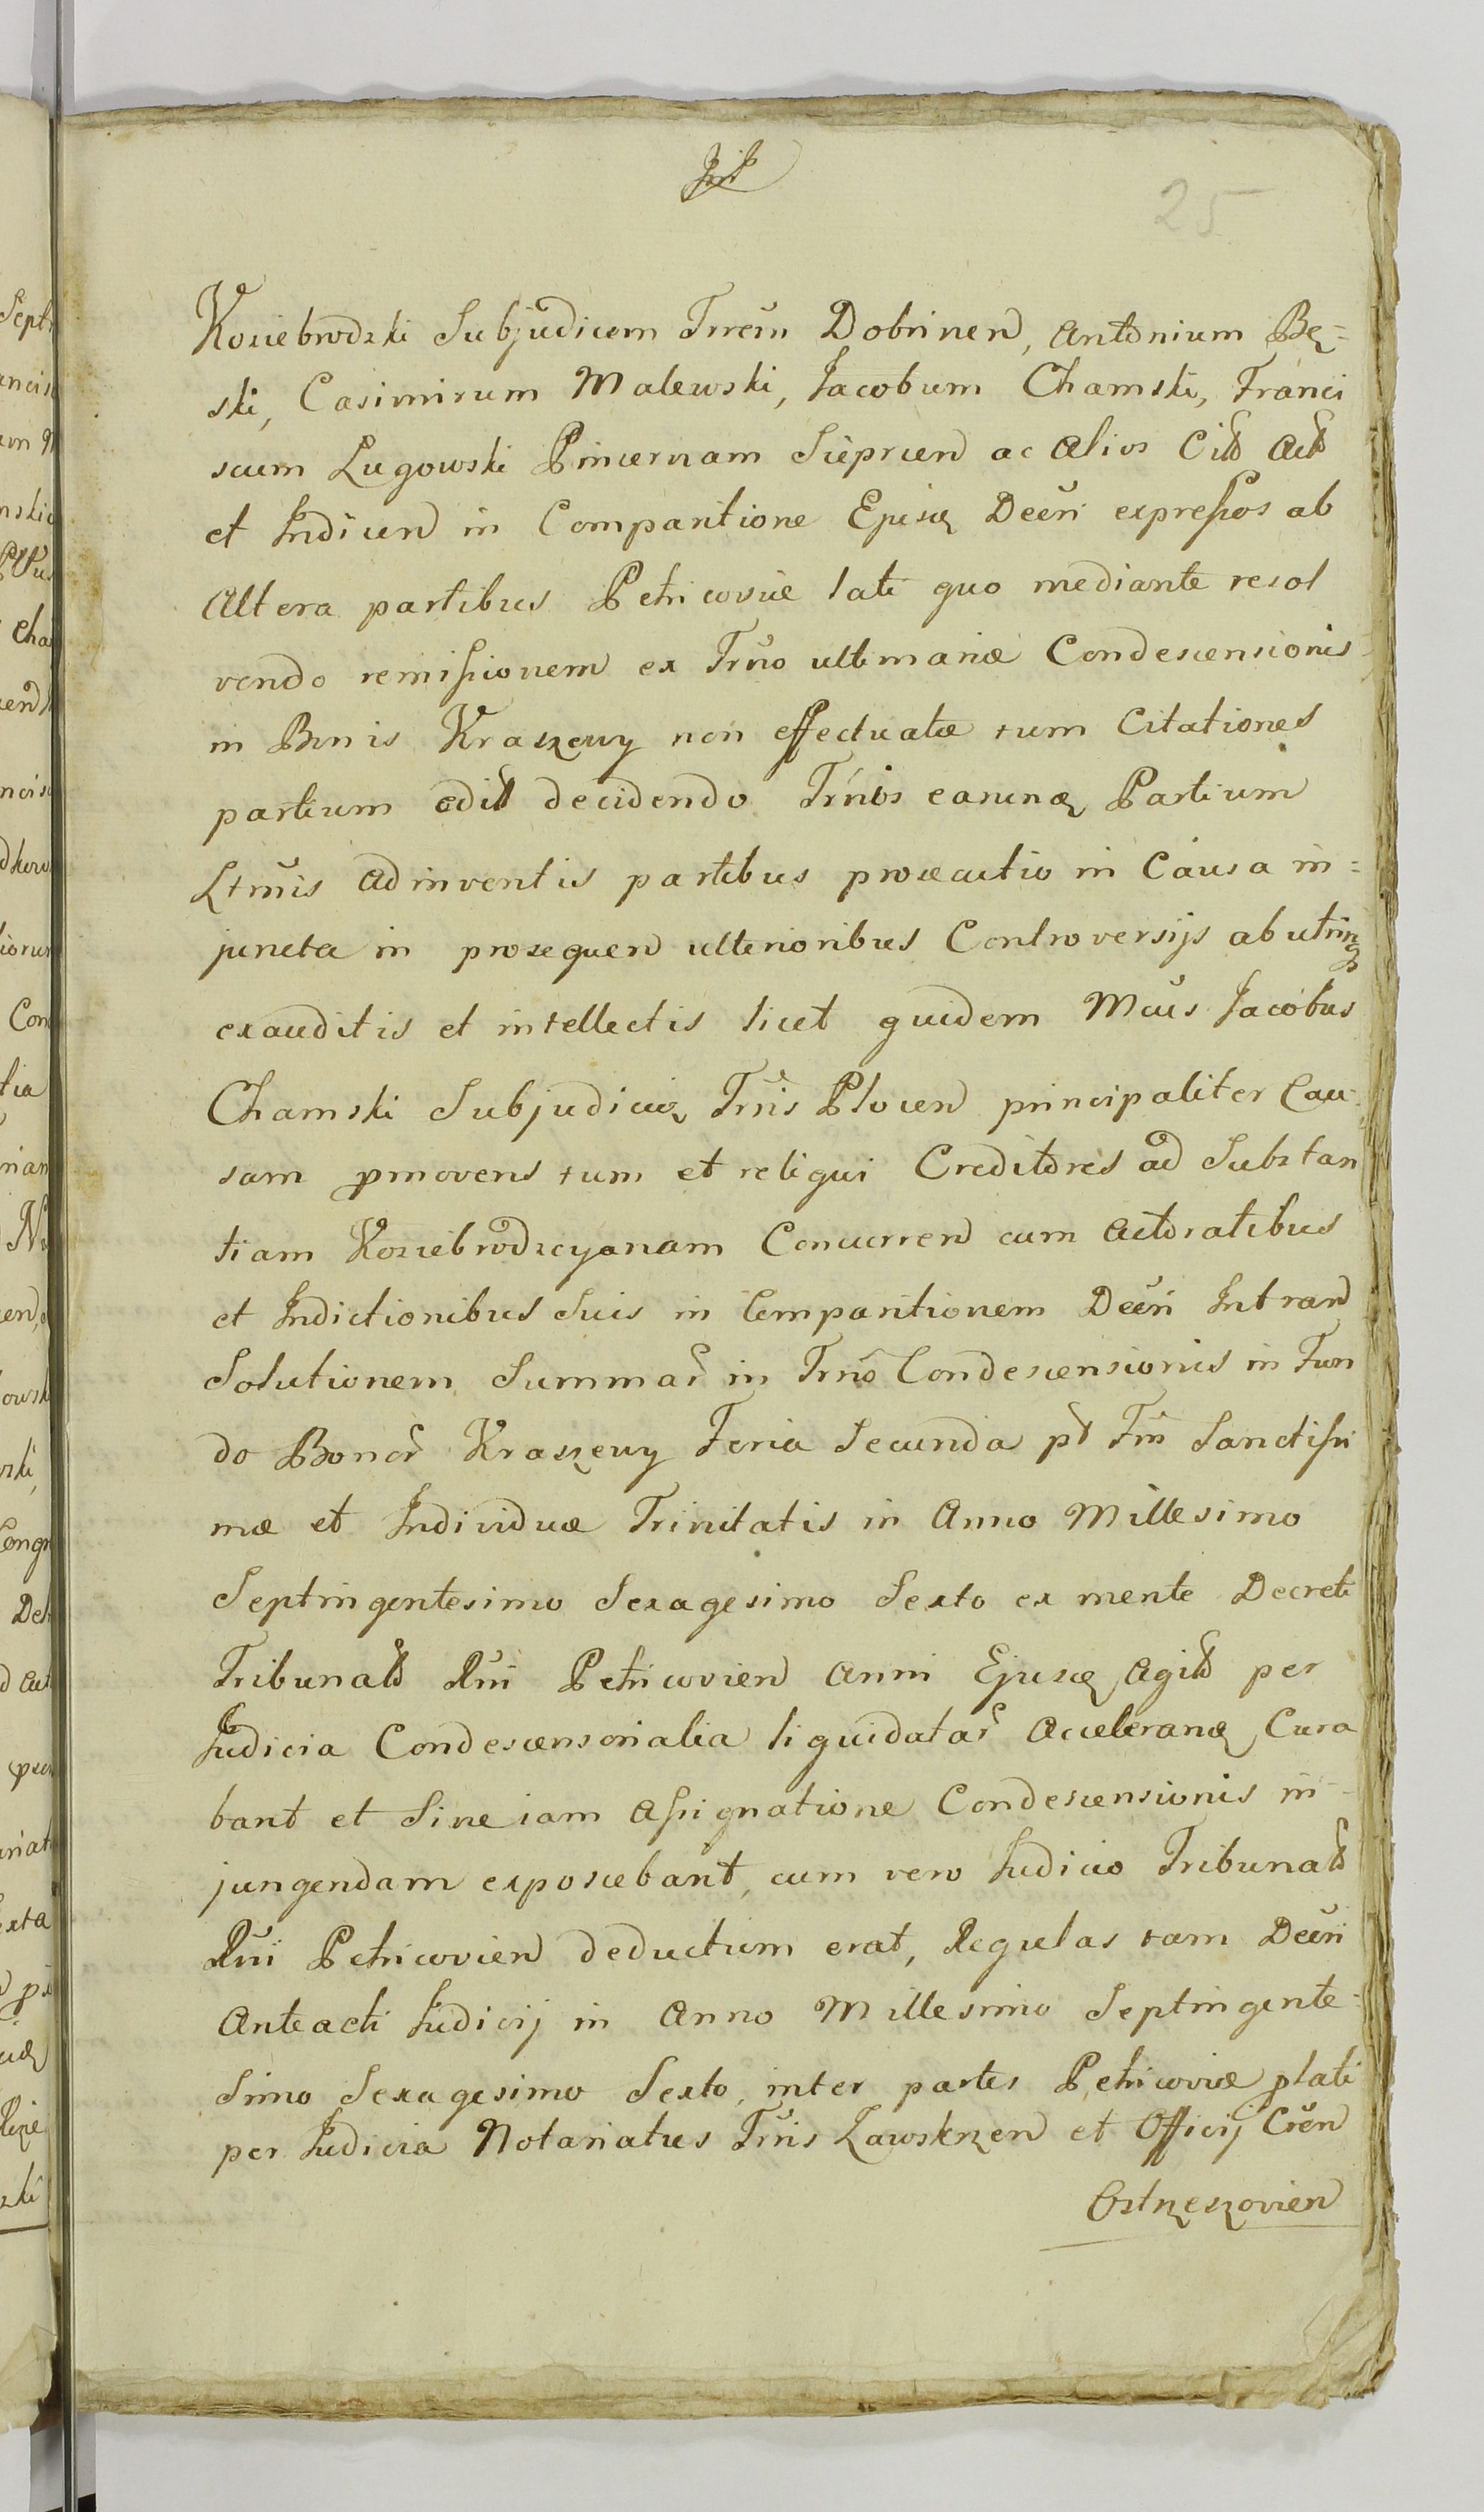 25
Koziebrodzki Subjudicem Trrem Dobrinen, Antonium Bę=
ski, Casimirum Malewski, Jacobum Chamski, Franci
scum Lugowski Pincernam Sieprcen ac Alios Citt Actt
et Indicen in Comparitione Ejusq Decri expressos ab
Altera partibus Petricoviæ lati quo mediante resol
vendo remissionem ex Trno ultimariæ Condescensionis
in Bonis Kraszewy non effectuatæ tum Citationes
partium edit decidendo Trnis earunq Partium
Ltmis adinventis partibus prosecutio in Causa in=
juncta in prosequen ulterioribus Controversijs ab utrinq
exauditis et intellectis licet quidem Mcus Jacobus
Chamski Subjudicis Trris Plocen principaliter Cau=
sam pmovens tum et reliqui Creditores ad Substan
tiam Koziebrodzcyanam Concurren cum Actoratibus
et Indictionibus Suis in Comparitionem Decri Intran
Solutionem Summar in Trno Condescensionis in Fun
do Bonor Kraszewy Feria Secunda pt Fm Sanctissi
mæ et Individuæ Trinitatis in Anno Millesimo
Septingentesimo Sexagesimo Sexto ex mente Decreti
Tribunalt Rni Petricovien Anni Ejusq Agitt per
Judicia Condescensorialia liquidatar Acceleranq Cura
bant et Sine iam Assignatione Condescensionis in=
jungendam exposcebant, cum vero Judicio Tribunalt
Rni Petricovien deductum erat, Regulas tam Decri
Anteacti Judicij in Anno Millesimo Septingente=
Simo Sexagesimo Sexto, inter partes Petricoviæ plati
per Judicia Notariatus Trris Zawskrzen et Officij Cren
Ostrzeszovien